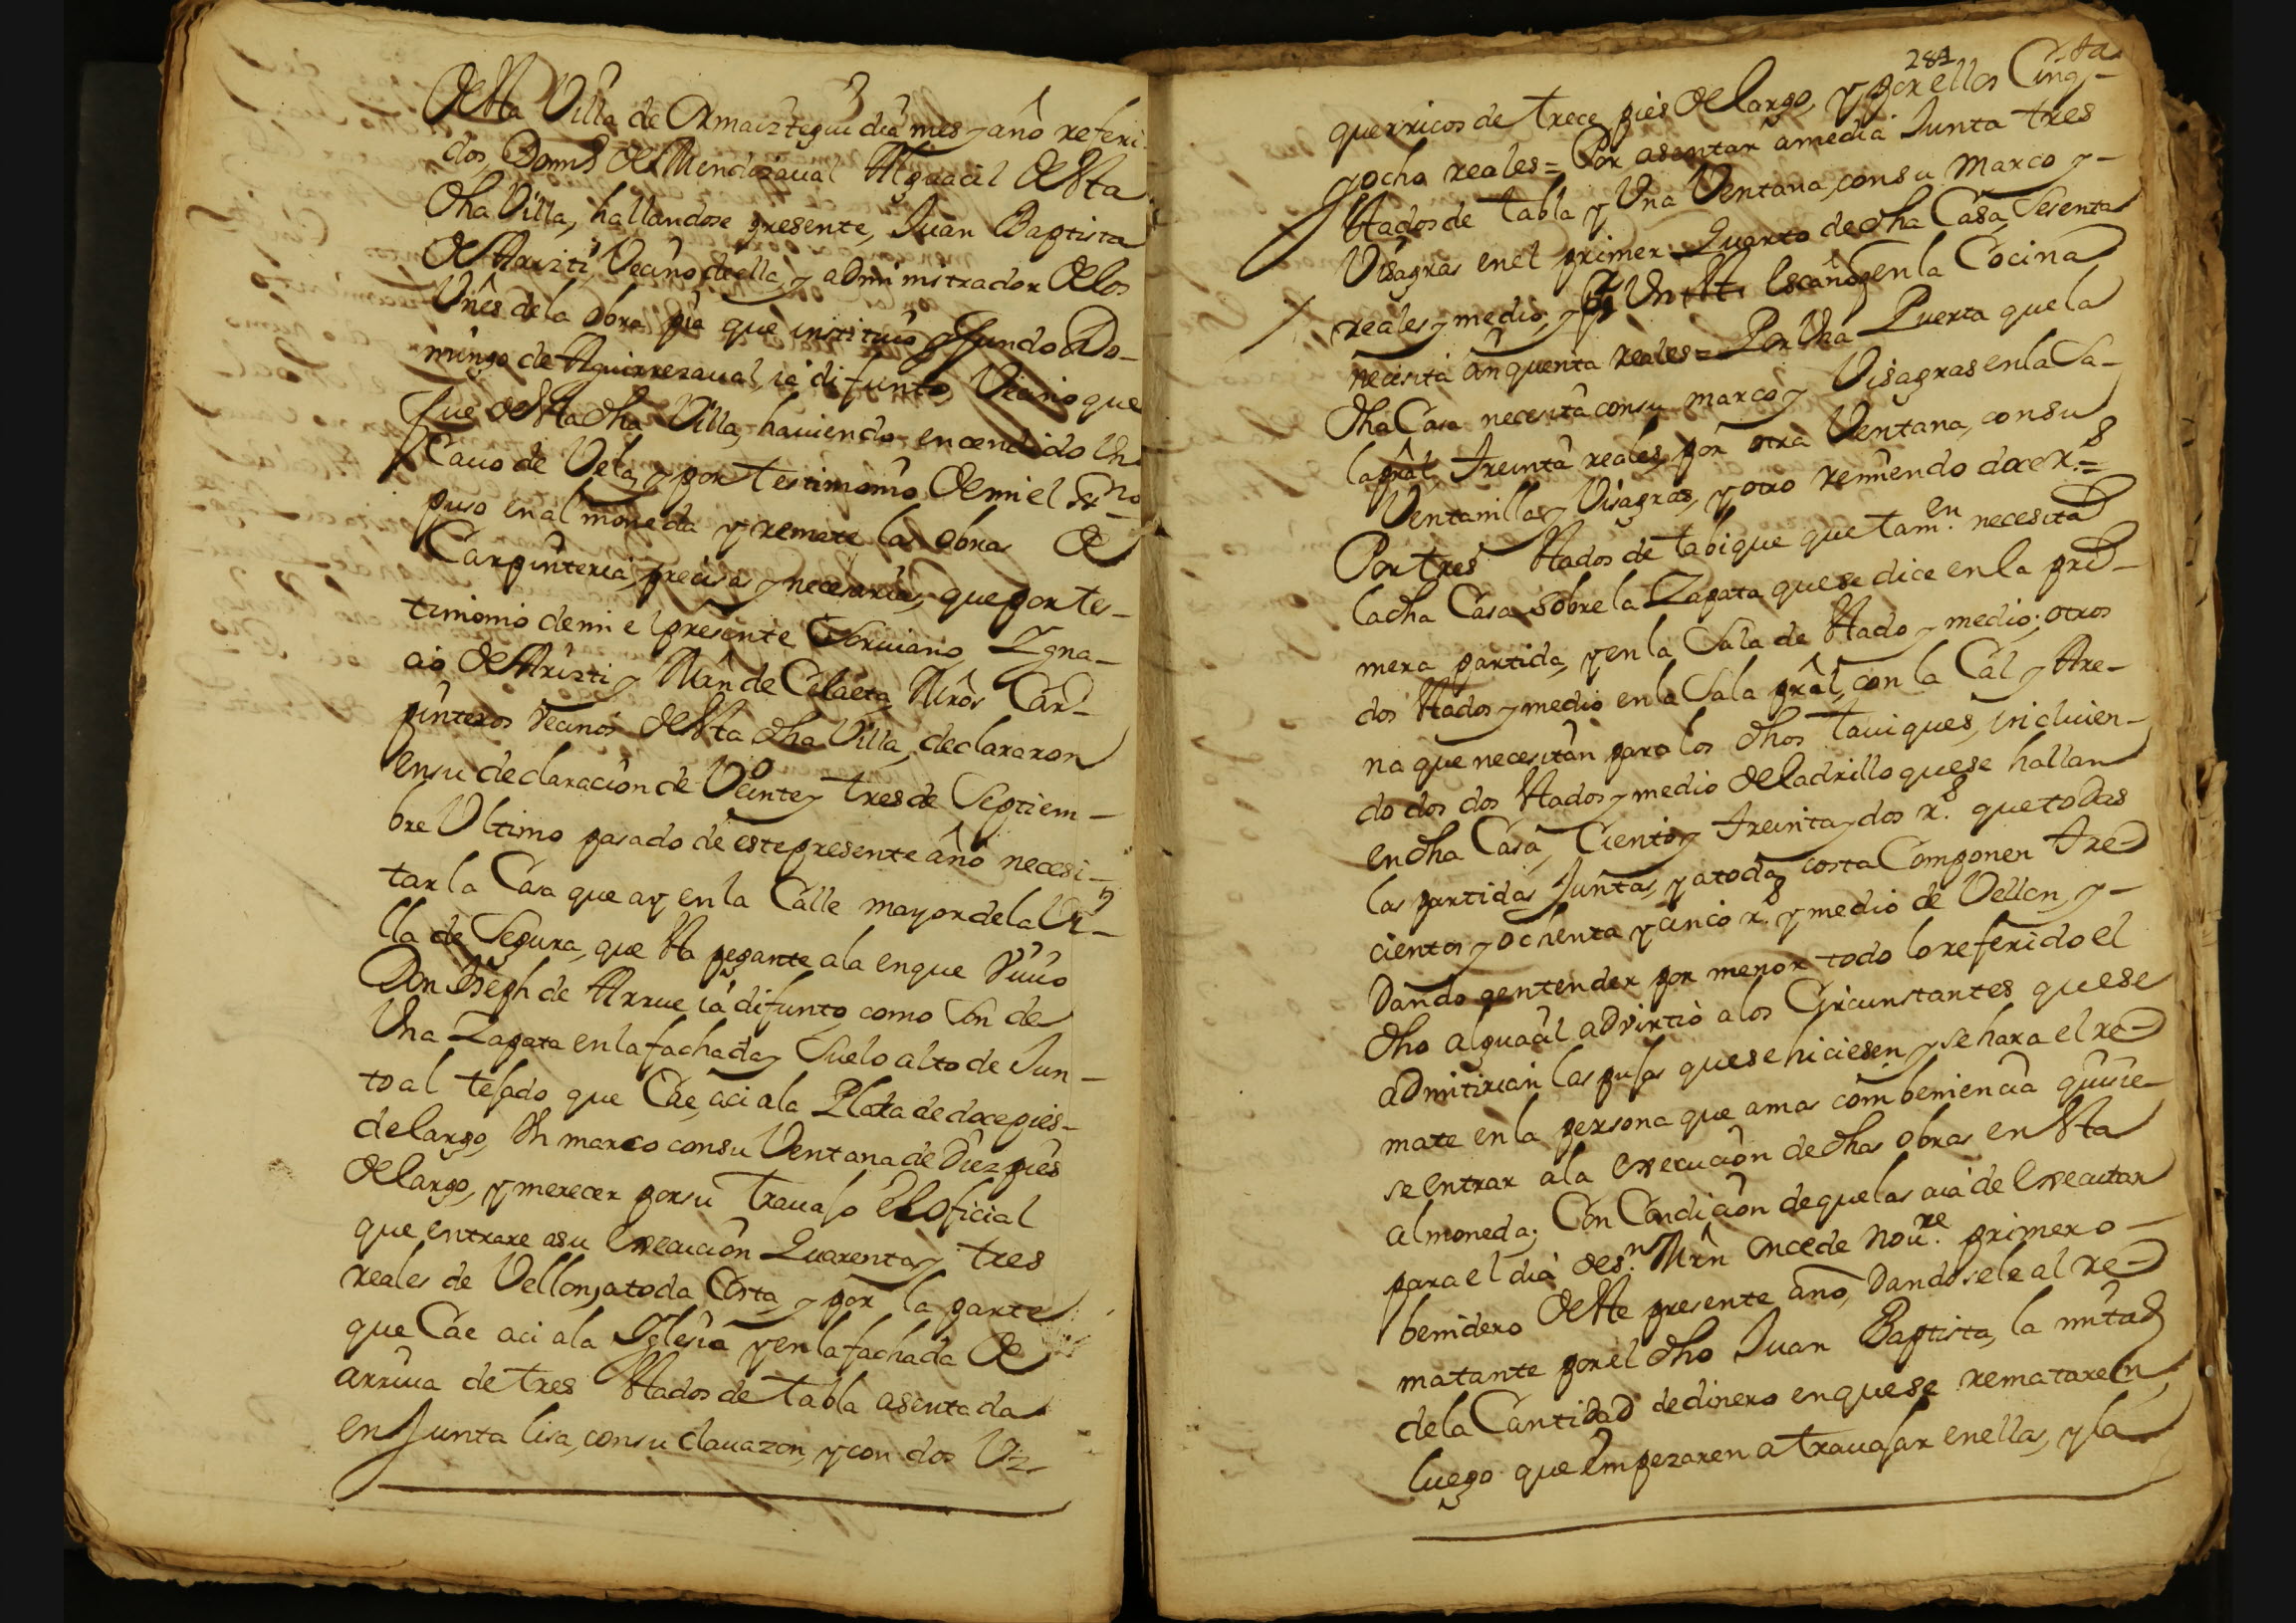 desta Villa de Ormaiztegui dia mes y año referi-
dos, Dom.º de Mendizaual Alguacil desta
dha Villa, hallandose presente, Juan Baptista
de Aristi Vecino de ella, y administrador de los
Vnēs de la obra pia que instituio y fundo Do-
mingo de Aguirrezaual, ia difunto Vecino que
fue desta dha Villa, hauiendo encendido Vn
Cauo de Vela, y por testimonio de mi el SS.no
puso en almoneda y remate las obras de
Carpinteria, precisas y necesarias, que por tes-
timonio de mi el presente Escriuano, Igna-
cio de Aristi y Mrn de Celaeta, Mros Car-
pinteros Vecinos desta dha Villa, declararon
en su declaracion de Veinte y tres de Septiem-
bre Vltimo pasado de este presente año necesi-
tar la Casa que ay en la Calle mayor de la Vi-
lla de Segura, que sta pegante ala en que Viuio
Don Joseph de Arrue ia difunto, como Son de
Vna Zapata en la fachada y Suelo alto de Jun-
to al tejado que Cae, acia la Plaza de doce pies
de largo, Vn marco con su Ventana de Diez pies
de largo, y merecer por su trauajo El oficial
que entrare a su execucion Quarenta y tres
reales de Vellon, a toda Costa, y por la parte
que Cae acia la Yglesia y en la fachada de
arriua de tres stados de tabla asentada
en Junta lisa, con su clauazon, y con dos Vz-
281
querricos de trece pies de largo, y por ellos Cinq.ta
y ocho reales = Por asentar a media Junta tres
stados de tabla y Vna Ventana, con su Marco y
Visagras en el primer Quarto de dha Casa, Sesenta
reales y medio, y Vn Escaño en la Cocina
necesita cinquenta reales = Por Vna Puerta que la
dha Casa necesita con su marco y Visagras en la Sa-
la pral, treinta reales, por otra Ventana, con su
Ventanilla y Visagras, y otro remiendo doce r.s =
Por tres stados de tabique que tam.en necesita
la dha Casa sobre la Zapata que se dice en la pri-
mera partida, y en la Sala de stado y medio; otros
dos stados y medio en la Sala pral, con la Cal y Are-
na que necesitan para los dhos tauiques, incluien-
do dos dos stados y medio de ladrillo que se hallan
en dha Casa, Ciento y treinta y dos r.s que todas
las partidas Juntas, y a toda costa Componen tre-
cientos y ochenta y cinco r.s y medio de Vellon, y
Dando a entender por menor todo lo referido el
dho alguacil advirtio a los Circunstantes que se
admitirian las pujas que se hiciesen y se hara el re-
mate en la persona que a mas combeniencia quisie-
se entrar a la execucion de dhas obras en sta
almoneda; Con Condicion de que las aia de executar
para el dia de S.n Mrn once de Nou.re primero
benidero deste presente año, Dandosele al re-
matante por el dho Juan Baptista, la mitad
de la Cantidad de dinero en que se rematare en
luego que empezaren a trauajar en ellas, y la